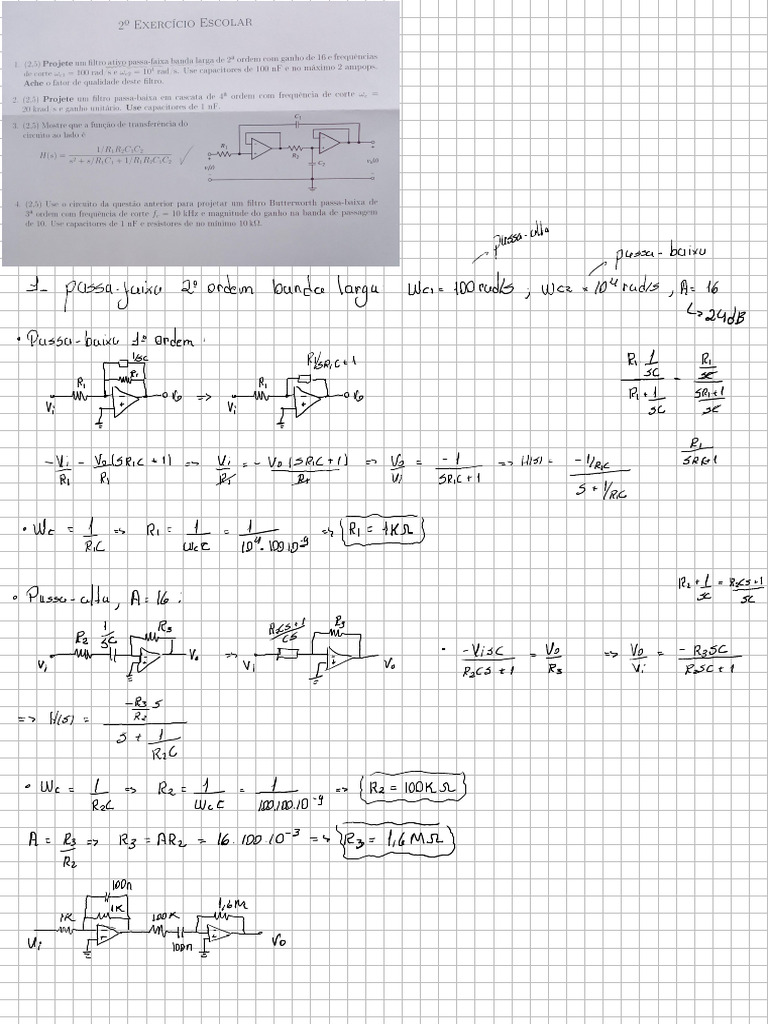 2º EXERCÍCIO ESCOLAR
1. (2.5) Projete um filtro ativo passa-faixa banda larga de 2ª ordem com ganho de 16 e frequências
de corte ω_c1 = 100 rad/s e ω_c2 = 10⁴ rad/s. Use capacitores de 100 nF e no máximo 2 ampops.
Ache o fator de qualidade deste filtro.
2. (2.5) Projete um filtro passa-baixa em cascata de 4ª ordem com frequência de corte ω_c =
20 krad/s e ganho unitário. Use capacitores de 1 nF.
3. (2.5) Mostre que a função de transferência do
circuito ao lado é
H(s) = 1/R₁R₂C₁C₂ / s² + s/R₁C₁ + 1/R₁R₂C₁C₂ ✓
C₁
R₁
R₂
C₂
v_i(t)
v_o(t)
4. (2.5) Use o circuito da questão anterior para projetar um filtro Butterworth passa-baixa de
3ª ordem com frequência de corte f_c = 10 kHz e magnitude do ganho na banda de passagem
de 10. Use capacitores de 1 nF e resistores de no mínimo 10 kΩ.
passa-alta
passa-baixa
1- passa-faixa 2º ordem banda larga Wc1 = 100 rad/s ; Wc2 = 10⁴ rad/s , A = 16
↳ 24dB
• Passa-baixa 1º ordem:
1/SC
R1
R1
Vi
Vo
⇒
R1/SR1C+1
R1
Vi
Vo
R1 · 1/SC / R1 + 1/SC = R1/SC / SR1+1/SC
R1/SR1+1
-Vi/R1 - Vo(SR1C+1)/R1 ⇒ Vi/R1 = -Vo(SR1C+1)/R1 ⇒ Vo/Vi = -1/SR1C+1 ⇒ H(S) = -1/R1C / S + 1/R1C
• Wc = 1/R1C ⇒ R1 = 1/WcC = 1/10⁴·100·10⁻⁹ ⇒ R1 = 1KΩ
• Passa-alta, A = 16:
R2 + 1/SC = R2CS+1/SC
R2
1/SC
R3
Vi
Vo
⇒
R2CS+1/CS
R3
Vi
Vo
• -ViSC/R2CS+1 = Vo/R3 ⇒ Vo/Vi = -R3SC/R2SC+1
⇒ H(S) = -R3/R2 S / S + 1/R2C
• Wc = 1/R2C ⇒ R2 = 1/WcC = 1/100.100.10⁻⁹ ⇒ R2 = 100KΩ
A = R3/R2 ⇒ R3 = AR2 = 16.100.10⁻³ ⇒ R3 = 1,6MΩ
100n
1K
1K
100K
100n
1,6M
Vi
Vo